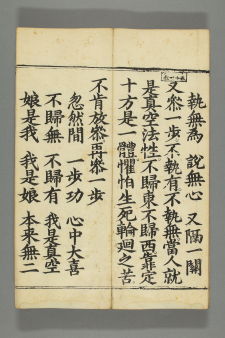 執無為 說無心 又隔一關
又叅一步不執有不執無當人就
是真空法性不歸東不歸西靠定
十方是一體懼怕生死輪廻之苦
不肯放叅再叅一步
忽然間 一步功 心中大喜
不歸無 不歸有 我是真空
娘是我 我是娘 本来無二